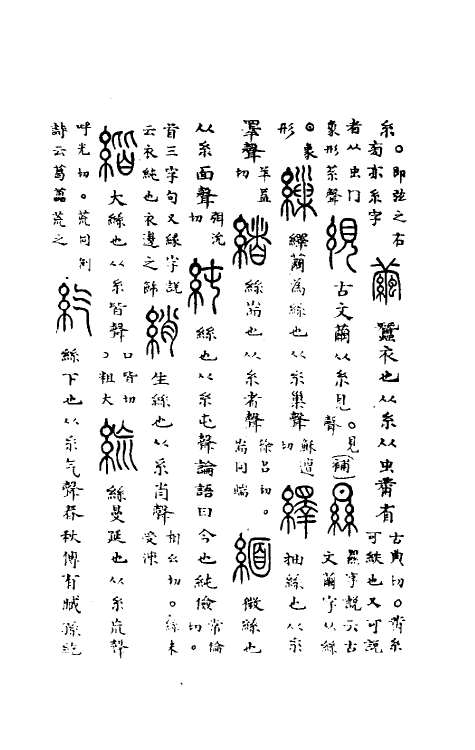 糸。即弦之右旁亦糸字 繭 蠶衣也从糸从虫黹省 古典切。黹糸可紩也又可說
者从虫冂象形 聲 絸 古文繭从糸見 。見聲 (補) 㬎 㬎字說云古文繭字从絲
。象形 繅 繹繭為絲也从糸巢聲 穌遭切 繹 抽絲也从糸
睪聲 羊益切 緒 絲耑也从糸者聲 徐呂切。耑同端 緬 微絲也
从糸面聲 弭沇切 純 絲也从糸屯聲論語曰今也純儉 常倫切。
三字句又緣字說云衣純也衣邊之飾 綃 生絲也从糸肖聲 相幺切。絲未受湅
緒 大絲也从糸皆聲 口皆切。粗大 絲曼延也从糸㡆聲
呼光切。 詩云葛藟荒之 紇 絲下也从糸气聲春秋傳有臧孫紇